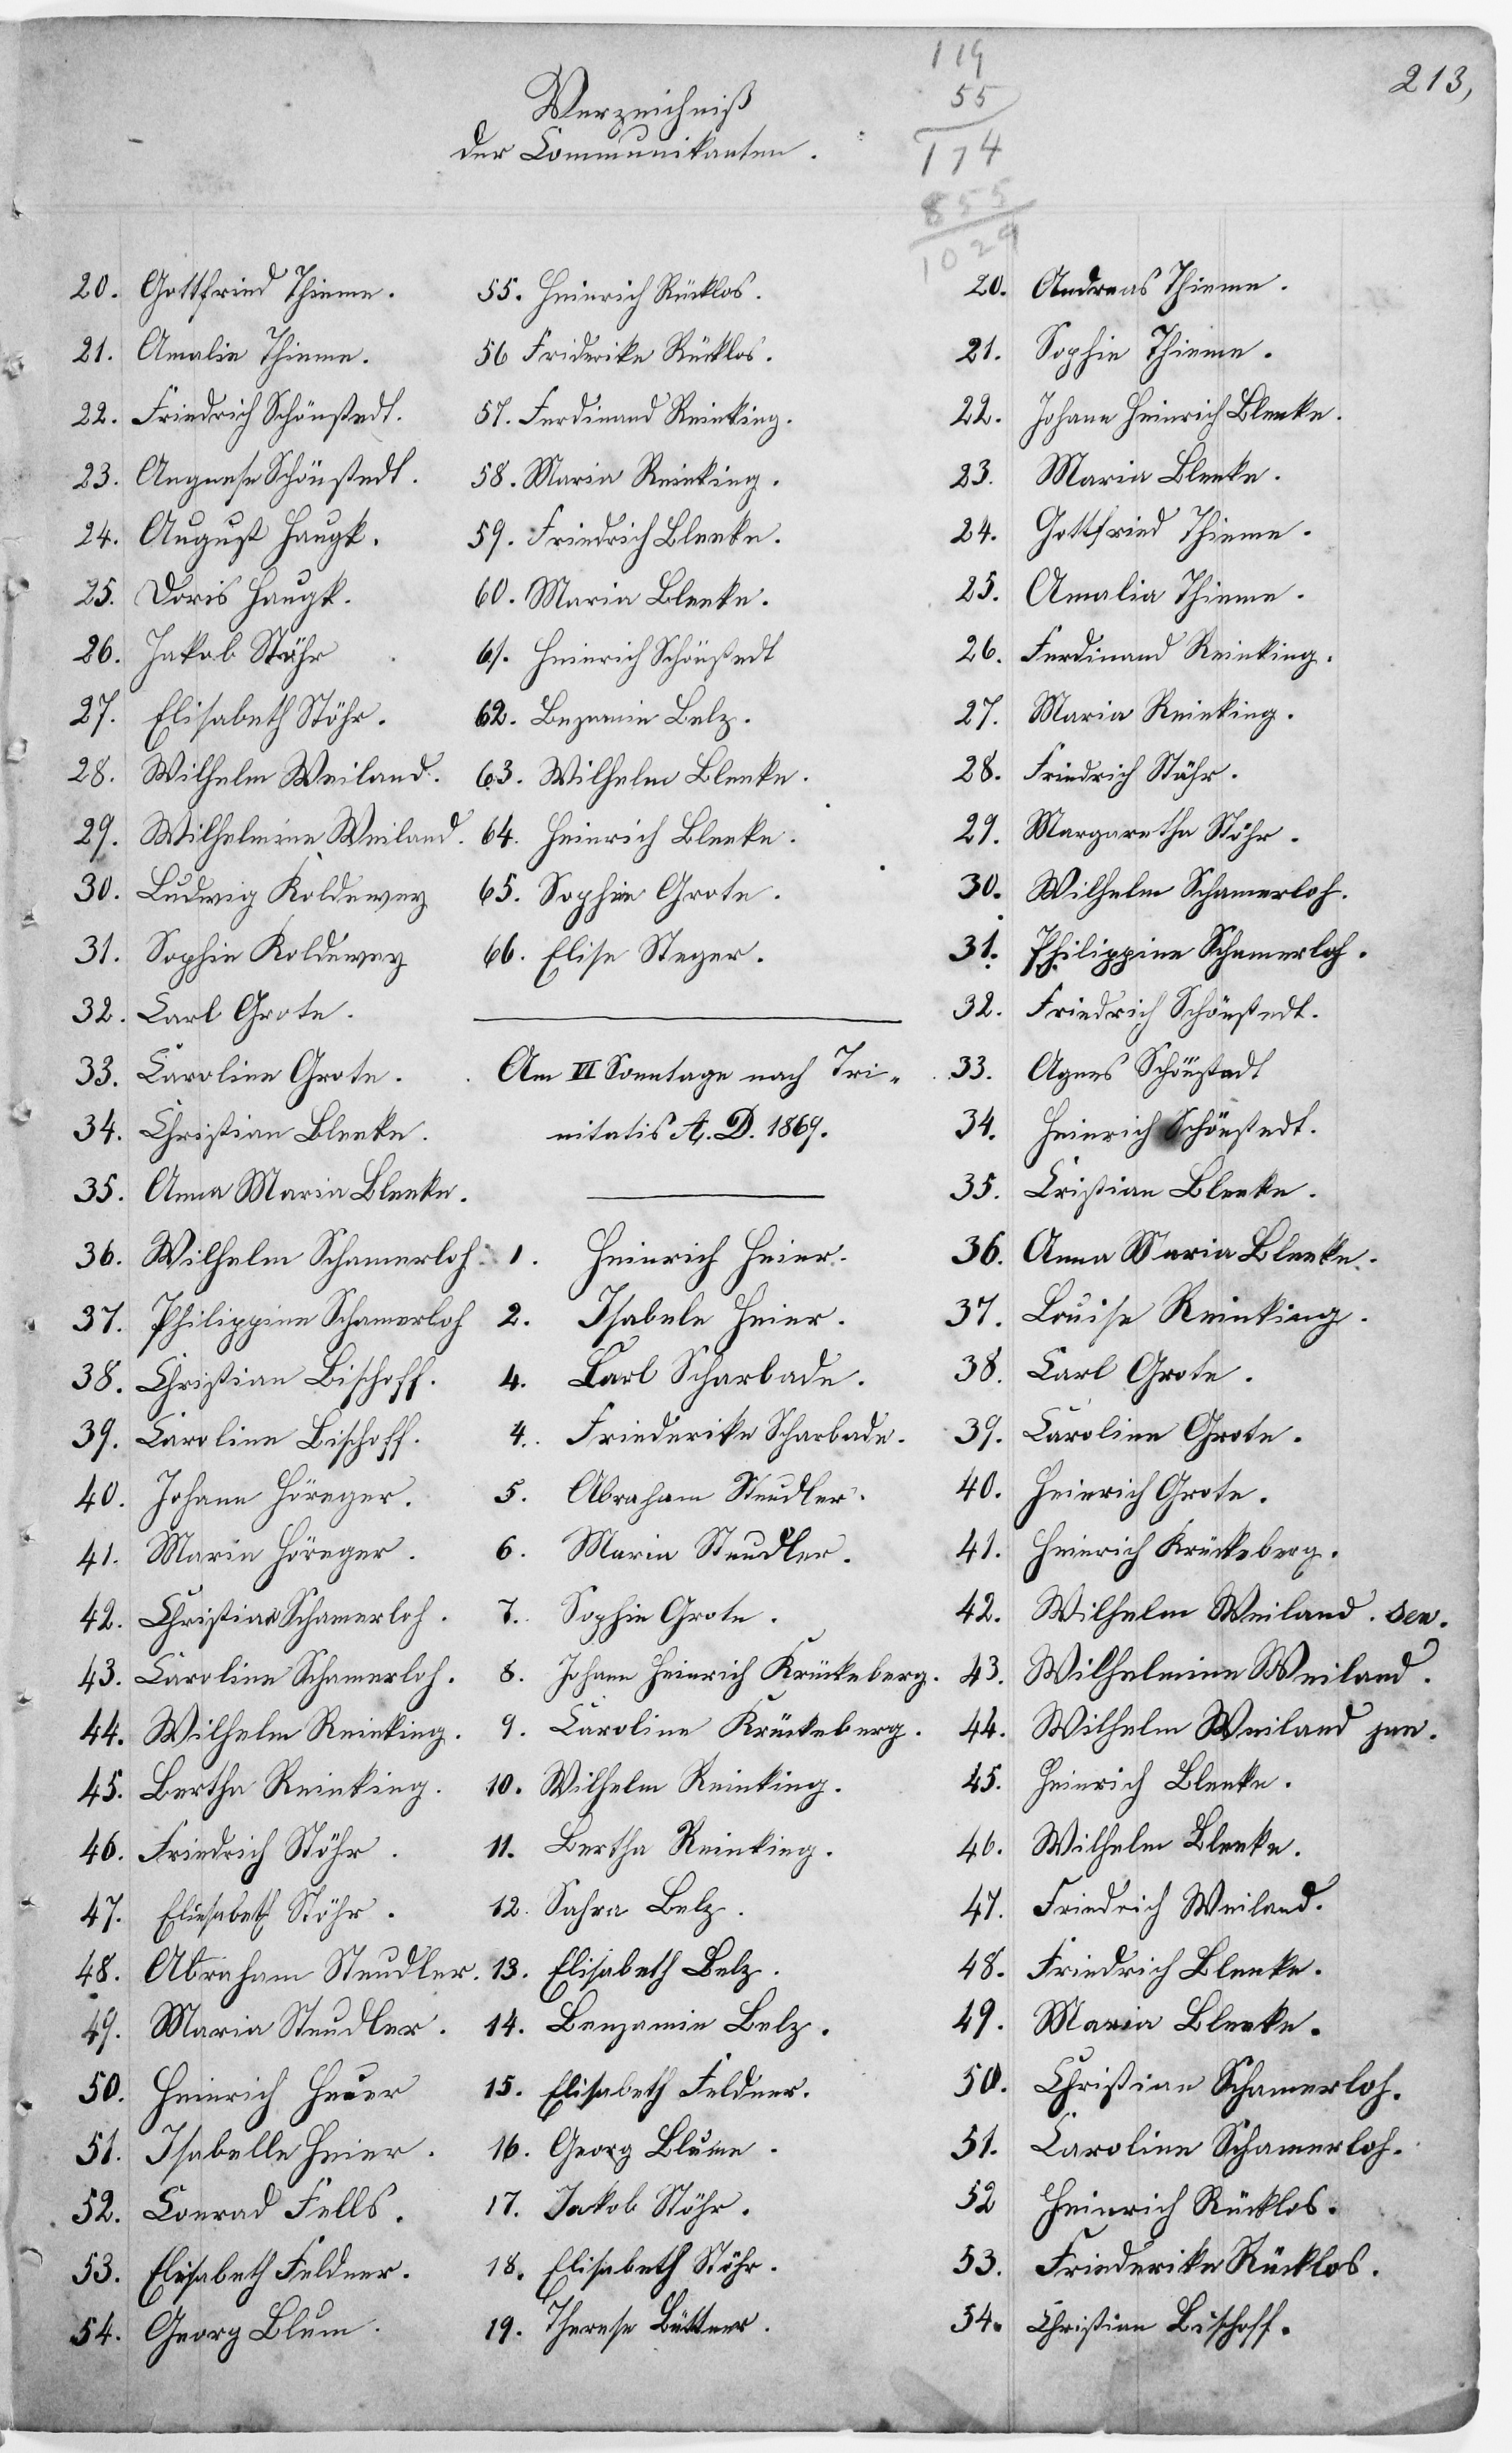 213,
119
55
174
855
1029
Verzeichniß
der Communikanten.
20. Gottfried Thieme.
21. Amalie Thieme.
22. Friedrich Schönstedt.
23. Angnese Schönstedt.
24. August Haugk.
25. Doris Haugk.
26. Jakob Stöhr
27. Elisabeth Stöhr.
28. Wilhelm Weiland.
29. Wilhelmine Weiland.
30. Ludwig Koldewey
31. Sophie Koldewey
32. Carl Grote.
33. Caroline Grote.
34. Christian Bleeke.
35. Anna Maria Bleeke.
36. Wilhelm Schamerloh.
37. Philippine Schamerloh
38. Christian Bischoff.
39. Caroline Bischoff.
40. Johann Höreger.
41. Maria Höreger.
42. Christian Schamerloh.
43. Caroline Schamerloh.
44. Wilhelm Reinking.
45. Bertha Reinking.
46. Friedrich Stöhr.
47. Eliesabeth Stöhr.
48. Abraham Steudler.
49. Maria Steudler.
50. Heinrich Heier
51. Isabelle Heier.
52. Conrad Fells.
53. Elisabeth Feldner.
54. Georg Blum.
55. Heinrich Rücklos.
56 Friderike Rücklos.
57. Ferdinand Reinking.
58. Maria Reinking.
59. Friedrich Bleeke.
60. Maria Bleeke.
61. Heinrich Schönstedt
62. Bezamin Belz.
63. Wilhelm Bleeke.
64. Heinrich Bleeke.
65. Sophie Grote.
66. Elise Steger.
Am VI Sonntage nach Tri-
nitatis A. D. 1869.
1. Heinrich Heier.
2. Isabele Heier.
4. Carl Scharbade.
4. Friederike Scharbade.
5. Abraham Steudler.
6. Maria Steudler.
7. Sophie Grote.
8. Johann Heinrich Krückeberg.
9. Caroline Krückeberg.
10. Wilhelm Reinking.
11. Bertha Reinking.
12. Sahra Belz.
13. Elisabeth Belz.
14. Benzamin Belz.
15. Elisabeth Feldner.
16. Georg Blume.
17. Jakob Stöhr.
18. Elisabeth Stöhr.
19. Therese Büttner.
20. Andreas Thieme.
21. Sophie Thieme.
22. Johann Heinrich Bleeke.
23. Maria Bleeke.
24. Gottfried Thieme.
25. Amalia Thieme.
26. Ferdinand Reinking.
27. Maria Reinking.
28. Friedrich Stöhr.
29. Margaretha Stöhr.
30. Wilhelm Schamerloh.
31. Philippine Schamerloh.
32. Friedrich Schönstedt.
33. Agnes Schönstedt
34. Heinrich Schönstedt.
35. Cristian Bleeke.
36. Anna Maria Bleeke.
37. Louise Reinking.
38. Carl Grote.
39. Caroline Grote.
40. Heinrich Grote.
41. Heinrich Krückeberg.
42. Wilhelm Weiland. sen.
43. Wilhelmine Weiland.
44. Wilhelm Weiland jun.
45. Heinrich Bleeke.
46. Wilhelm Bleeke.
47. Friedrich Weiland.
48. Friedrich Bleeke.
49. Maria Bleeke.
50. Christian Schamerloh.
51. Caroline Schamerloh.
52 Heinrich Rücklos.
53. Friederike Rücklos.
54. Christian Bischoff.